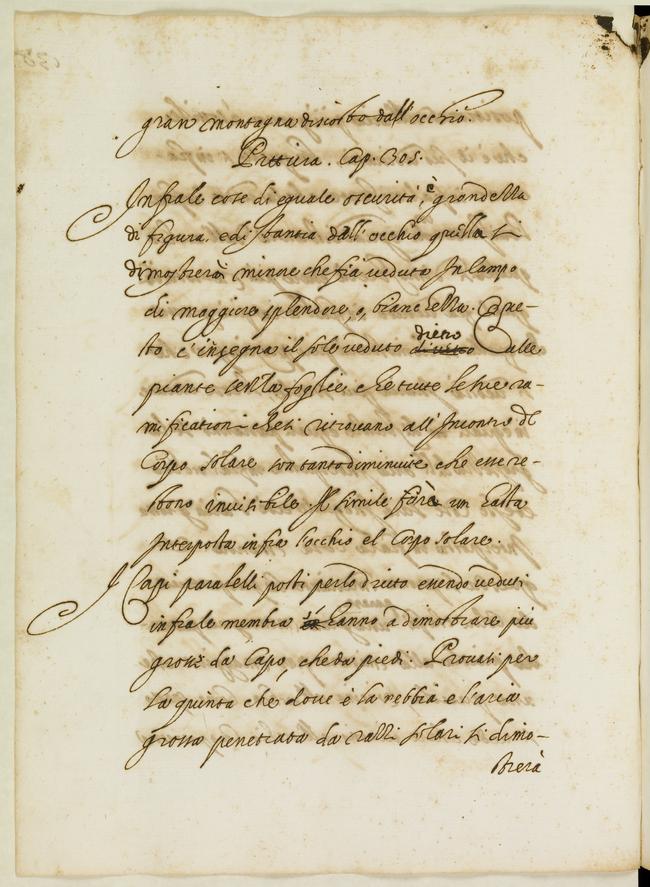 gran montagna discosto dall'occhio.
Pittura. Cap. 305.
Infra le cose di equale oscurità, è grandezza
di figura, e distantia dall'occhio quella si
dimostrerà minore che fia veduta In campo
di maggiore splendore, ò, bianchezza. Que-
sto c'insegna il sole veduto dietro alle
piante senza foglie che tutte le sue ra-
mificationi che si ritrovano all'Incontro del
Corpo solare son tanto diminuite che esse re-
stono invisibile. Il simile farà un hasta
Interposta infra l'occhio el Corpo solare.
I Capi paralelli posti per lo dritto essendo veduti
infra le membra hanno a dimostrare più
grossi da Capo, che da piedi. Provasi per
la quinta che dove è la nebbia e l'aria
grossa penetrata da razzi solari si dimo-
strerà